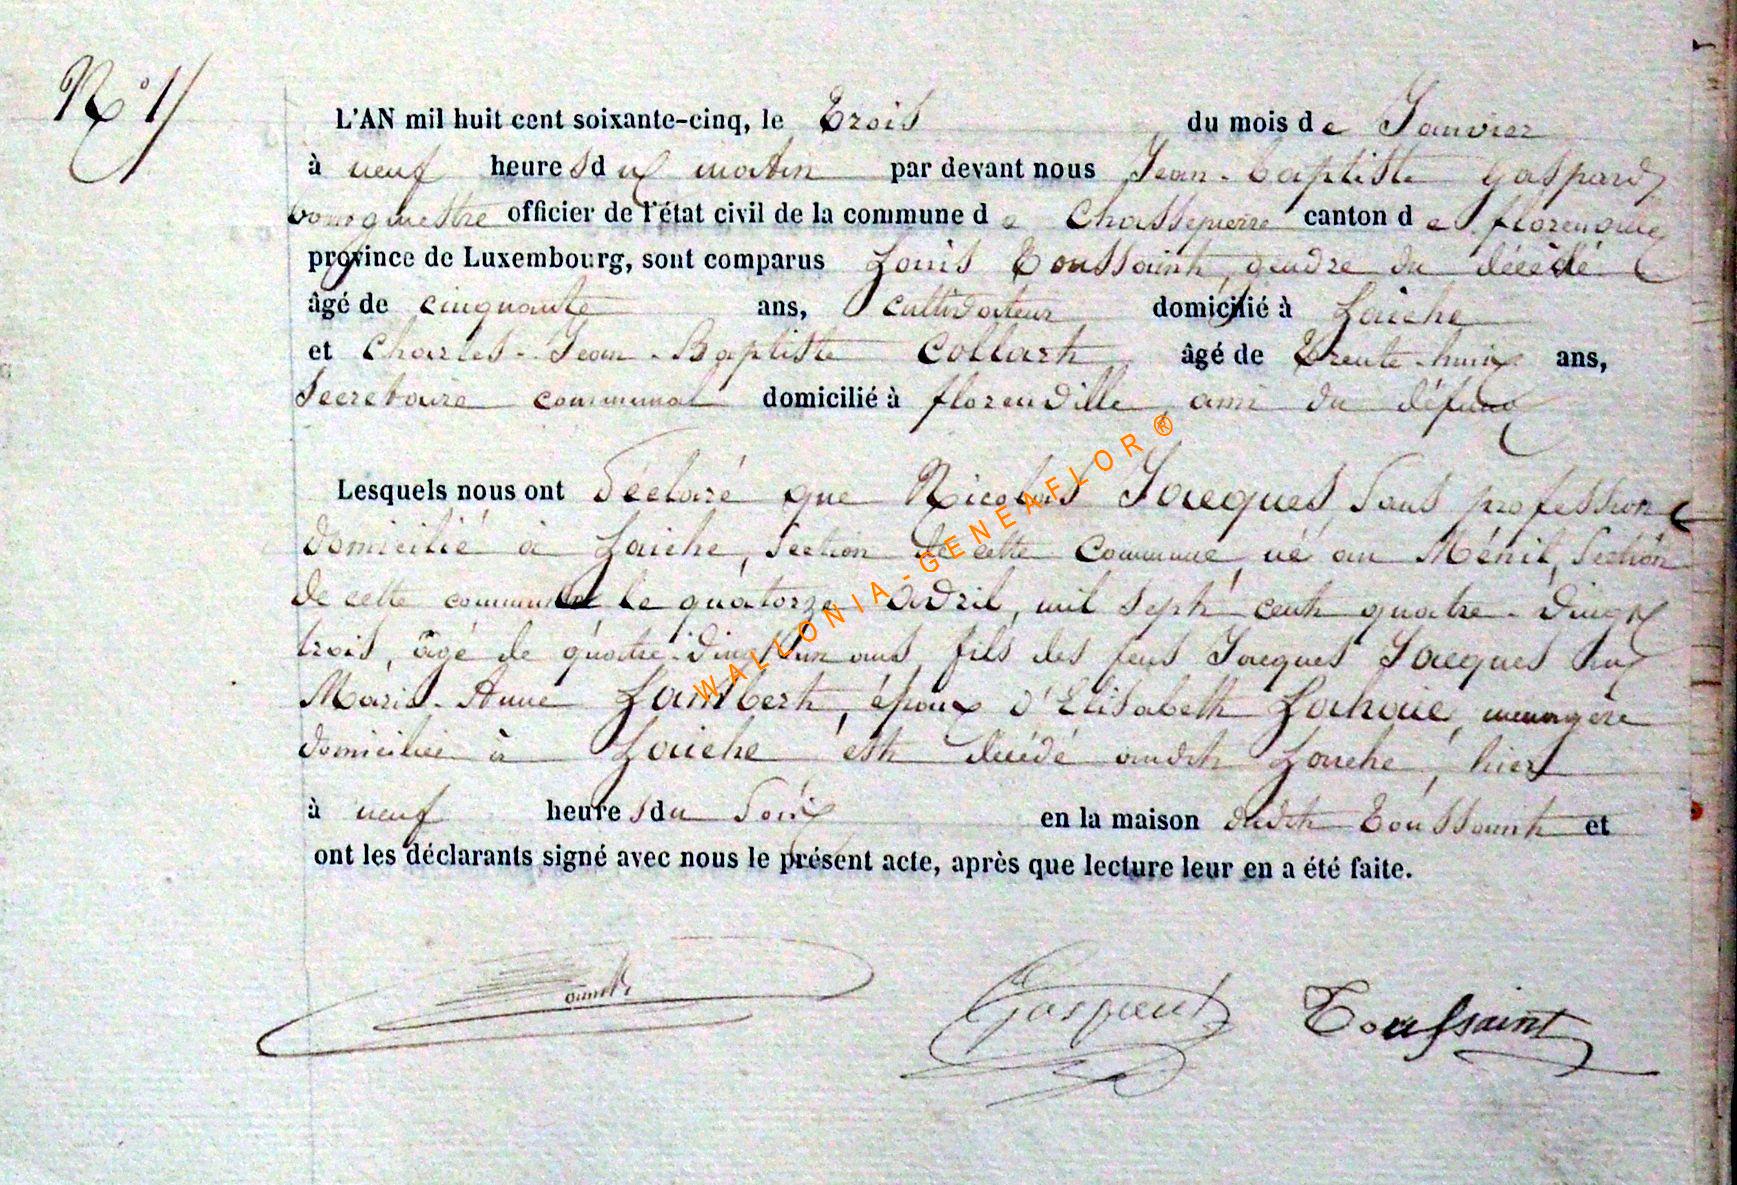 N° 1
L'AN mil huit cent soixante-cinq, le Trois du mois de Janvier
à neuf heures du matin par devant nous Jean-baptiste Gaspard,
bourgmestre officier de l'état civil de la commune de Chassepierre canton de florenville
province de Luxembourg, sont comparus Louis Toussaint, gendre du décédé
âgé de cinquante ans, cultivateur domicilié à Laiche
et Charles-Jean-Baptiste Collart âgé de trente-huit ans,
secretaire communal domicilié à florenville, ami du défunt
Lesquels nous ont déclaré que Nicolas Jacques, sans profession
domicilié à Laiche, section de cette commune, né au Ménil, section
de cette commune le quatorze avril, mil sept cent quatre-vingt
trois, âgé de quatre-vingt un ans, fils des feus Jacques Jacques
Marie-Anne Lambert, époux d'Elisabeth menagère
domiciliée à Laiche est décédé audit Laiche, hier
à neuf heures du soir en la maison dudit Toussaint et
ont les déclarants signé avec nous le présent acte, après que lecture leur en a été faite.
Gaspard Toussaint
WALLONIA-GENEAFLOR®